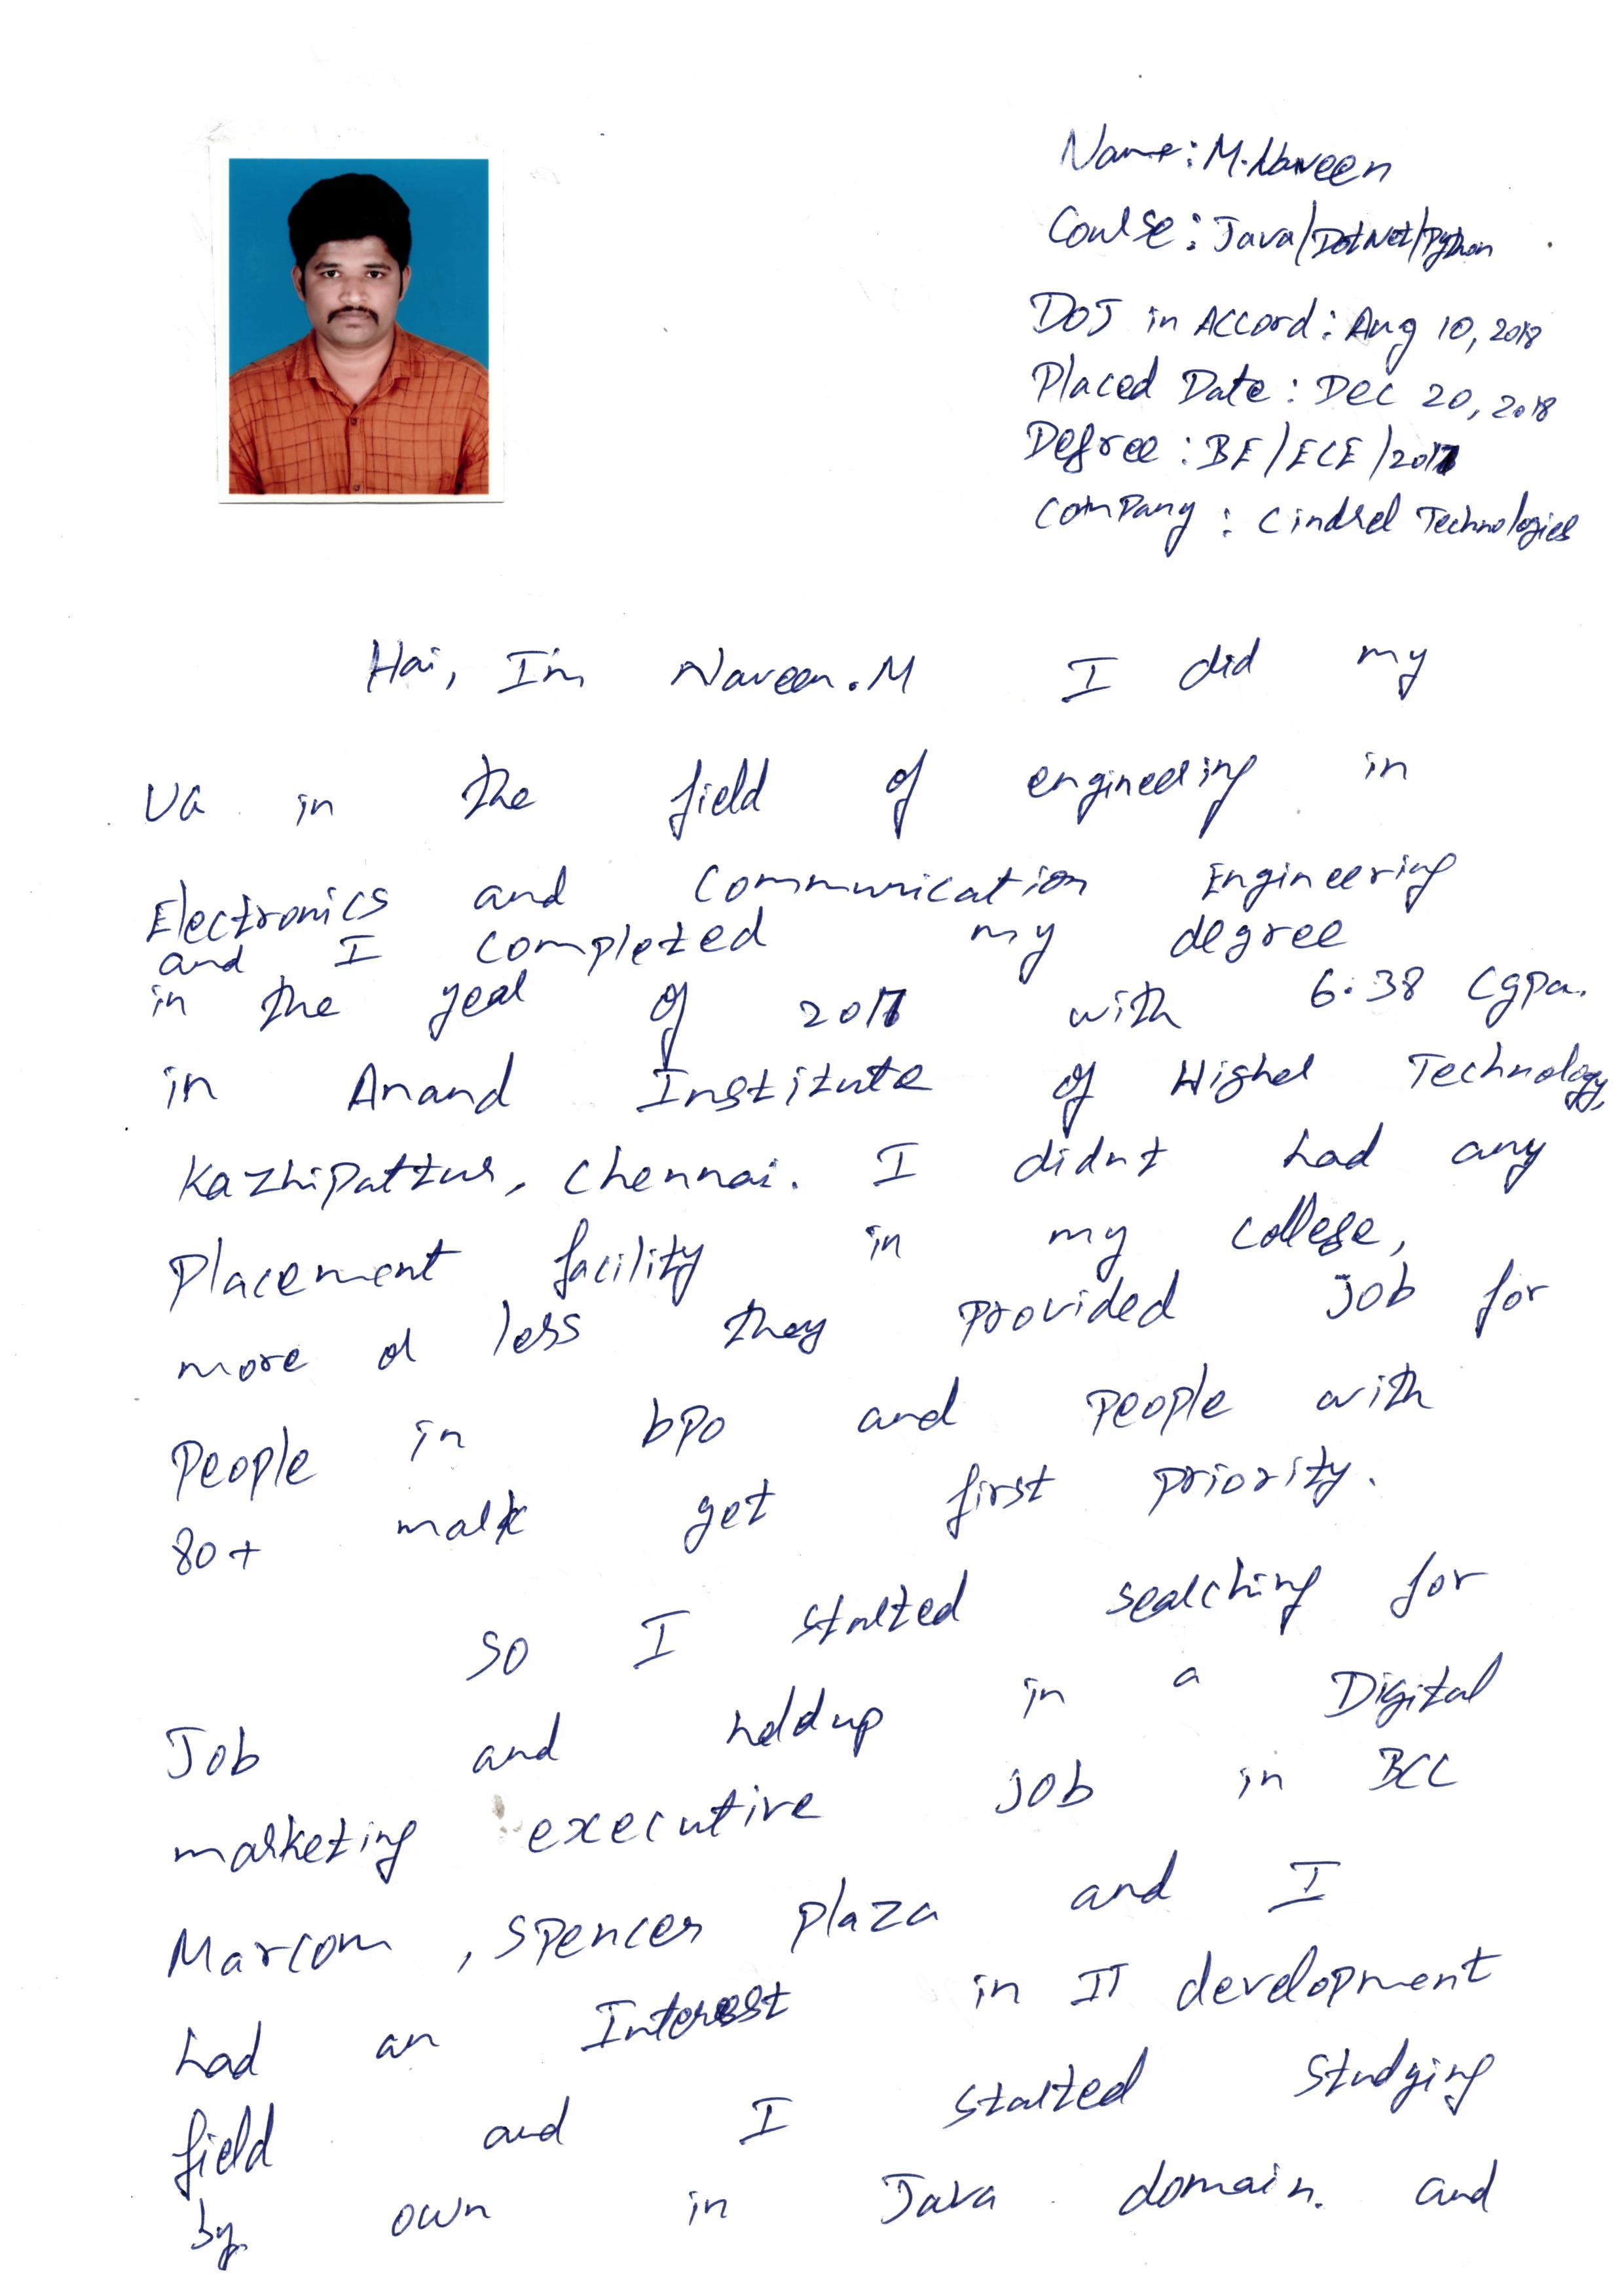 Name: M.Naveen
Course: Java/DotNet/Python
DOJ in Accord: Aug 10, 2018
Placed Date: Dec 20, 2018
Degree: BE/ECE/2017
Company: Cindrel Technologies
Hai, I'm Naveen.M I did my
UG in the field of engineering in
Electronics and Communication Engineering
and I completed my degree
in the year of 2017 with 6.38 Cgpa.
in Anand Institute of Higher Technology,
Kazhipattur, Chennai. I didn't had any
Placement facility in my college,
more or less they provided job for
People in bpo and people with
80+ mark get first priority.
So I started searching for
Job and holdup in a Digital
marketing executive job in BCC
Marcom, Spencer plaza and I
had an Interest in IT development
field and I started studying
by own in Java domain. and